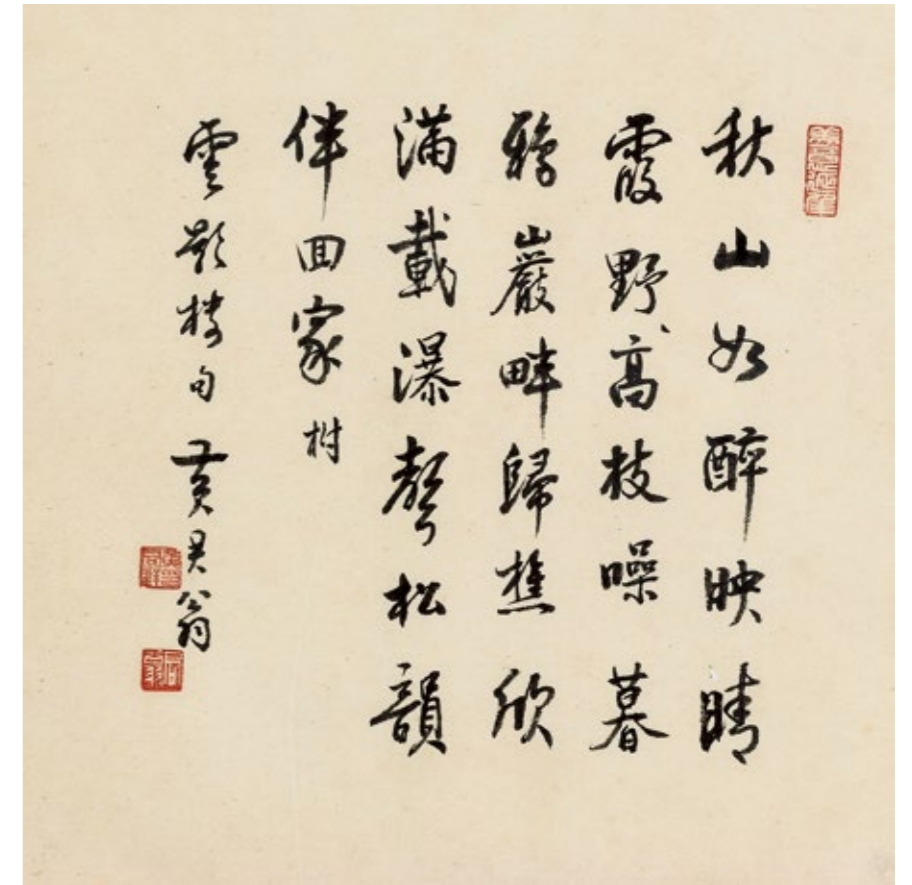 秋山如醉映晴
霞野高枝噪暮
鴉巖畔歸樵欣
滿載瀑聲松韻
伴回家 樹
雲歟樓句 黃君翁